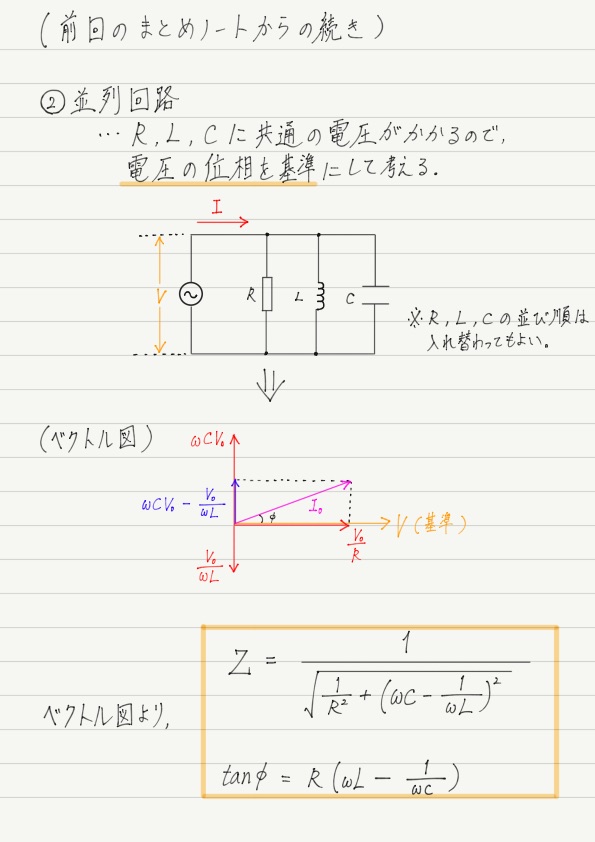 (前回のまとめノートからの続き)
② 並列回路
… R, L, C に共通の電圧がかかるので,
電圧の位相を基準にして考える.
I
V
R
L
C
※ R, L, C の並び順は
入れ替わってもよい。
(ベクトル図)
ωCV₀
ωCV₀ - V₀/ωL
I₀
φ
V (基準)
V₀/R
V₀/ωL
Z = 1/√(1/R² + (ωC - 1/ωL)²)
ベクトル図より,
tanφ = R(ωL - 1/ωC)